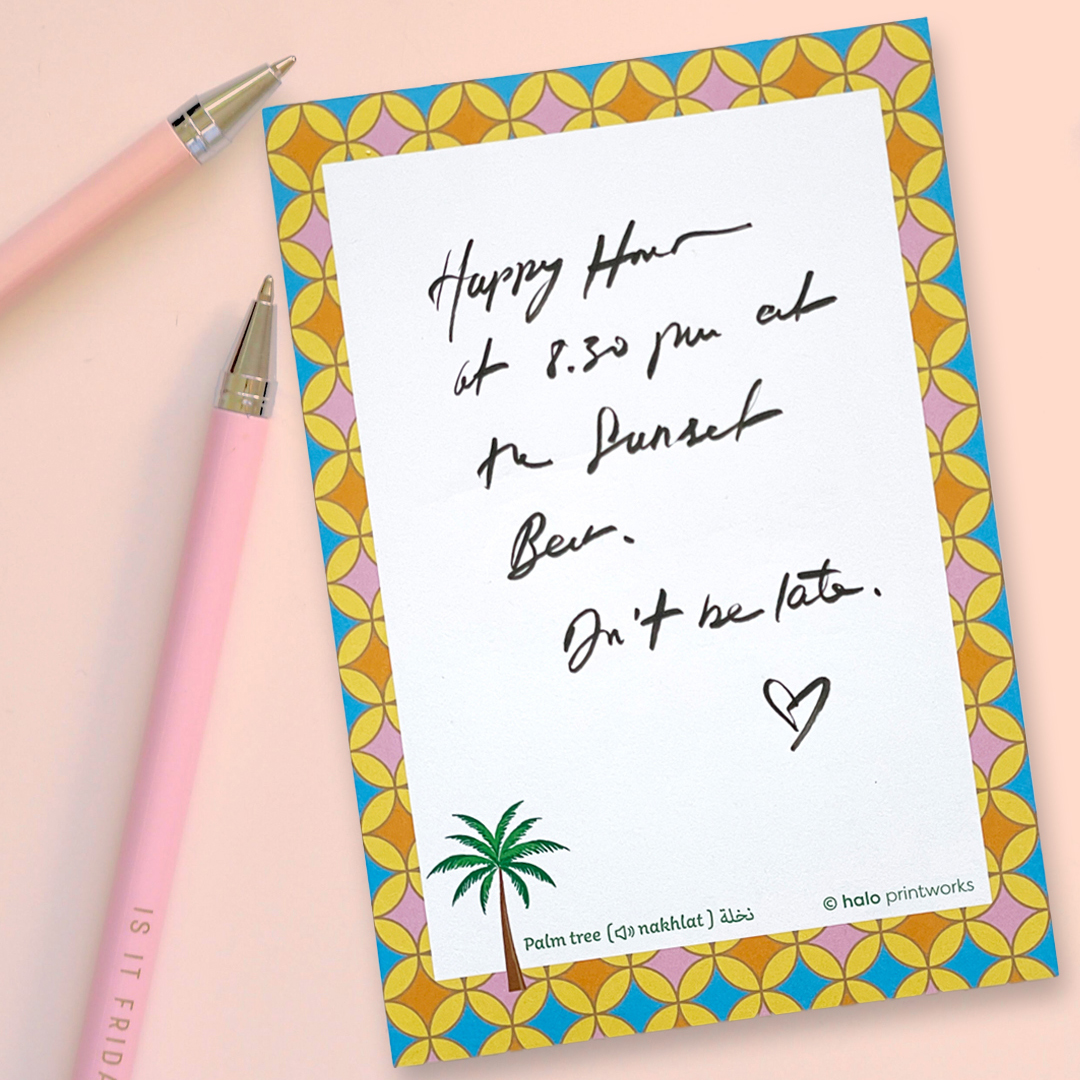 Happy Hour
at 8.30 pm at
the Sunset
Bar.
Don't be late.
Palm tree ( nakhlat ) نخلة
© halo printworks
IS IT FRIDA